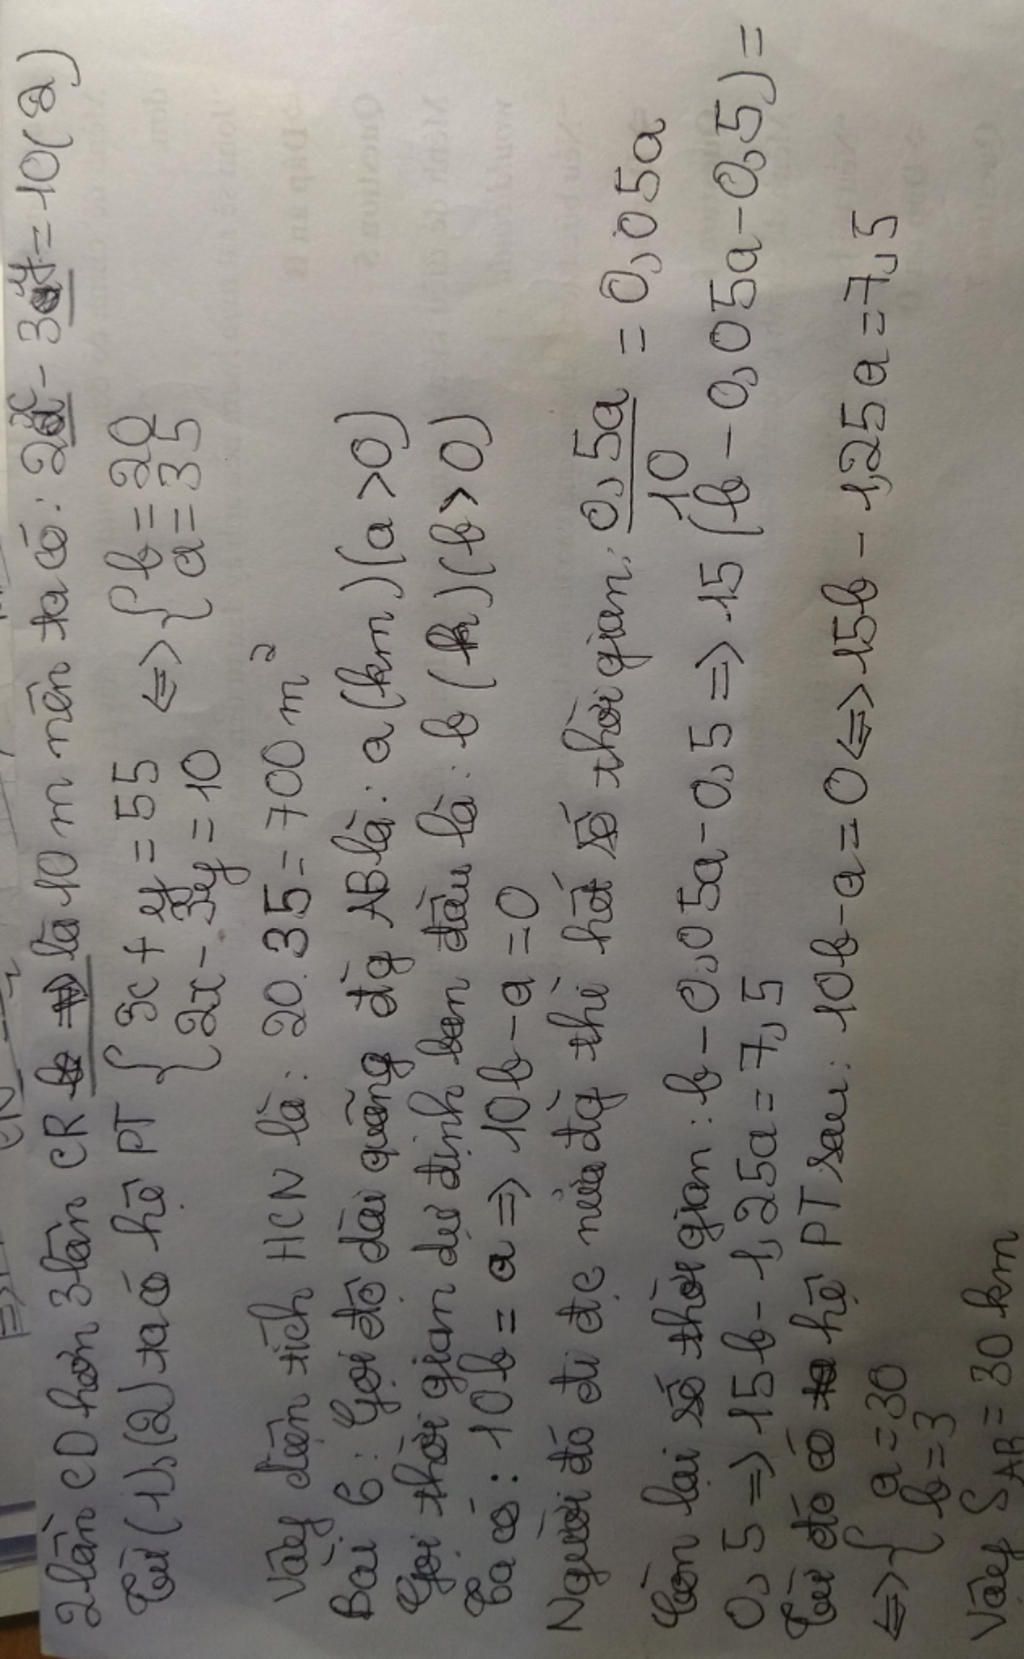 2 lần CD hơn 3 lần CR là 10 m nên ta có: 2x - 3y = 10 (2)
Từ (1), (2) ta có hệ PT { x + y = 55 <=> { b = 20
{ 2x - 3y = 10 { a = 35
Vậy diện tích HCN là: 20.35 = 700 m²
Bài 6: Gọi độ dài quãng đg AB là: a (km) (a > 0)
Gọi thời gian dự định ban đầu là: b (h) (b > 0)
Ta có: 10b = a => 10b - a = 0
Người đó đi đc nửa đg thì hết số thời gian: 0,5a/10 = 0,05a
Còn lại số thời gian: b - 0,05a - 0,5 => 15 (b - 0,05a - 0,5) =
0,5 => 15b - 1,25a = 7,5
Từ đó có hệ PT sau: 10b - a = 0 <=> 15b - 1,25a = 7,5
<=> { a = 30
{ b = 3
Vậy S AB = 30 km